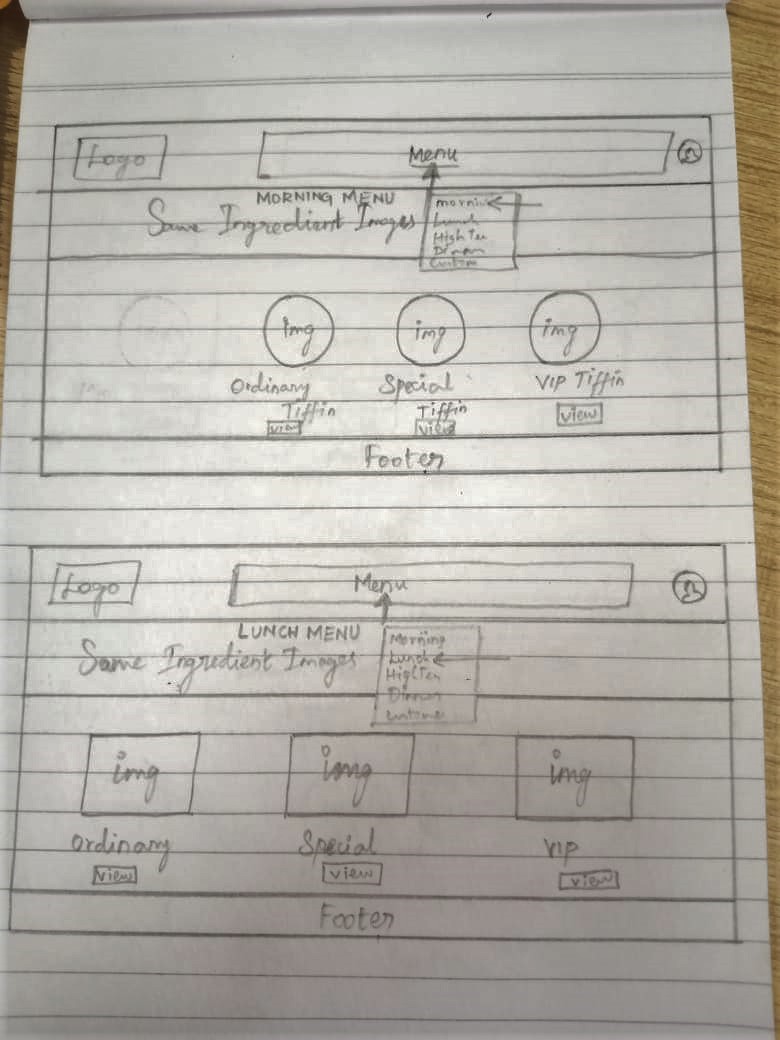 Logo
Menu
MORNING MENU
Same Ingredient Images
morning
Lunch
High Tea
Dinner
Custom
img
img
img
Ordinary
Tiffin
view
Special
Tiffin
view
VIP Tiffin
view
Footer
Logo
Menu
LUNCH MENU
Same Ingredient Images
Morning
Lunch
High Tea
Dinner
img
img
img
Ordinary
view
Special
view
VIP
view
Footer